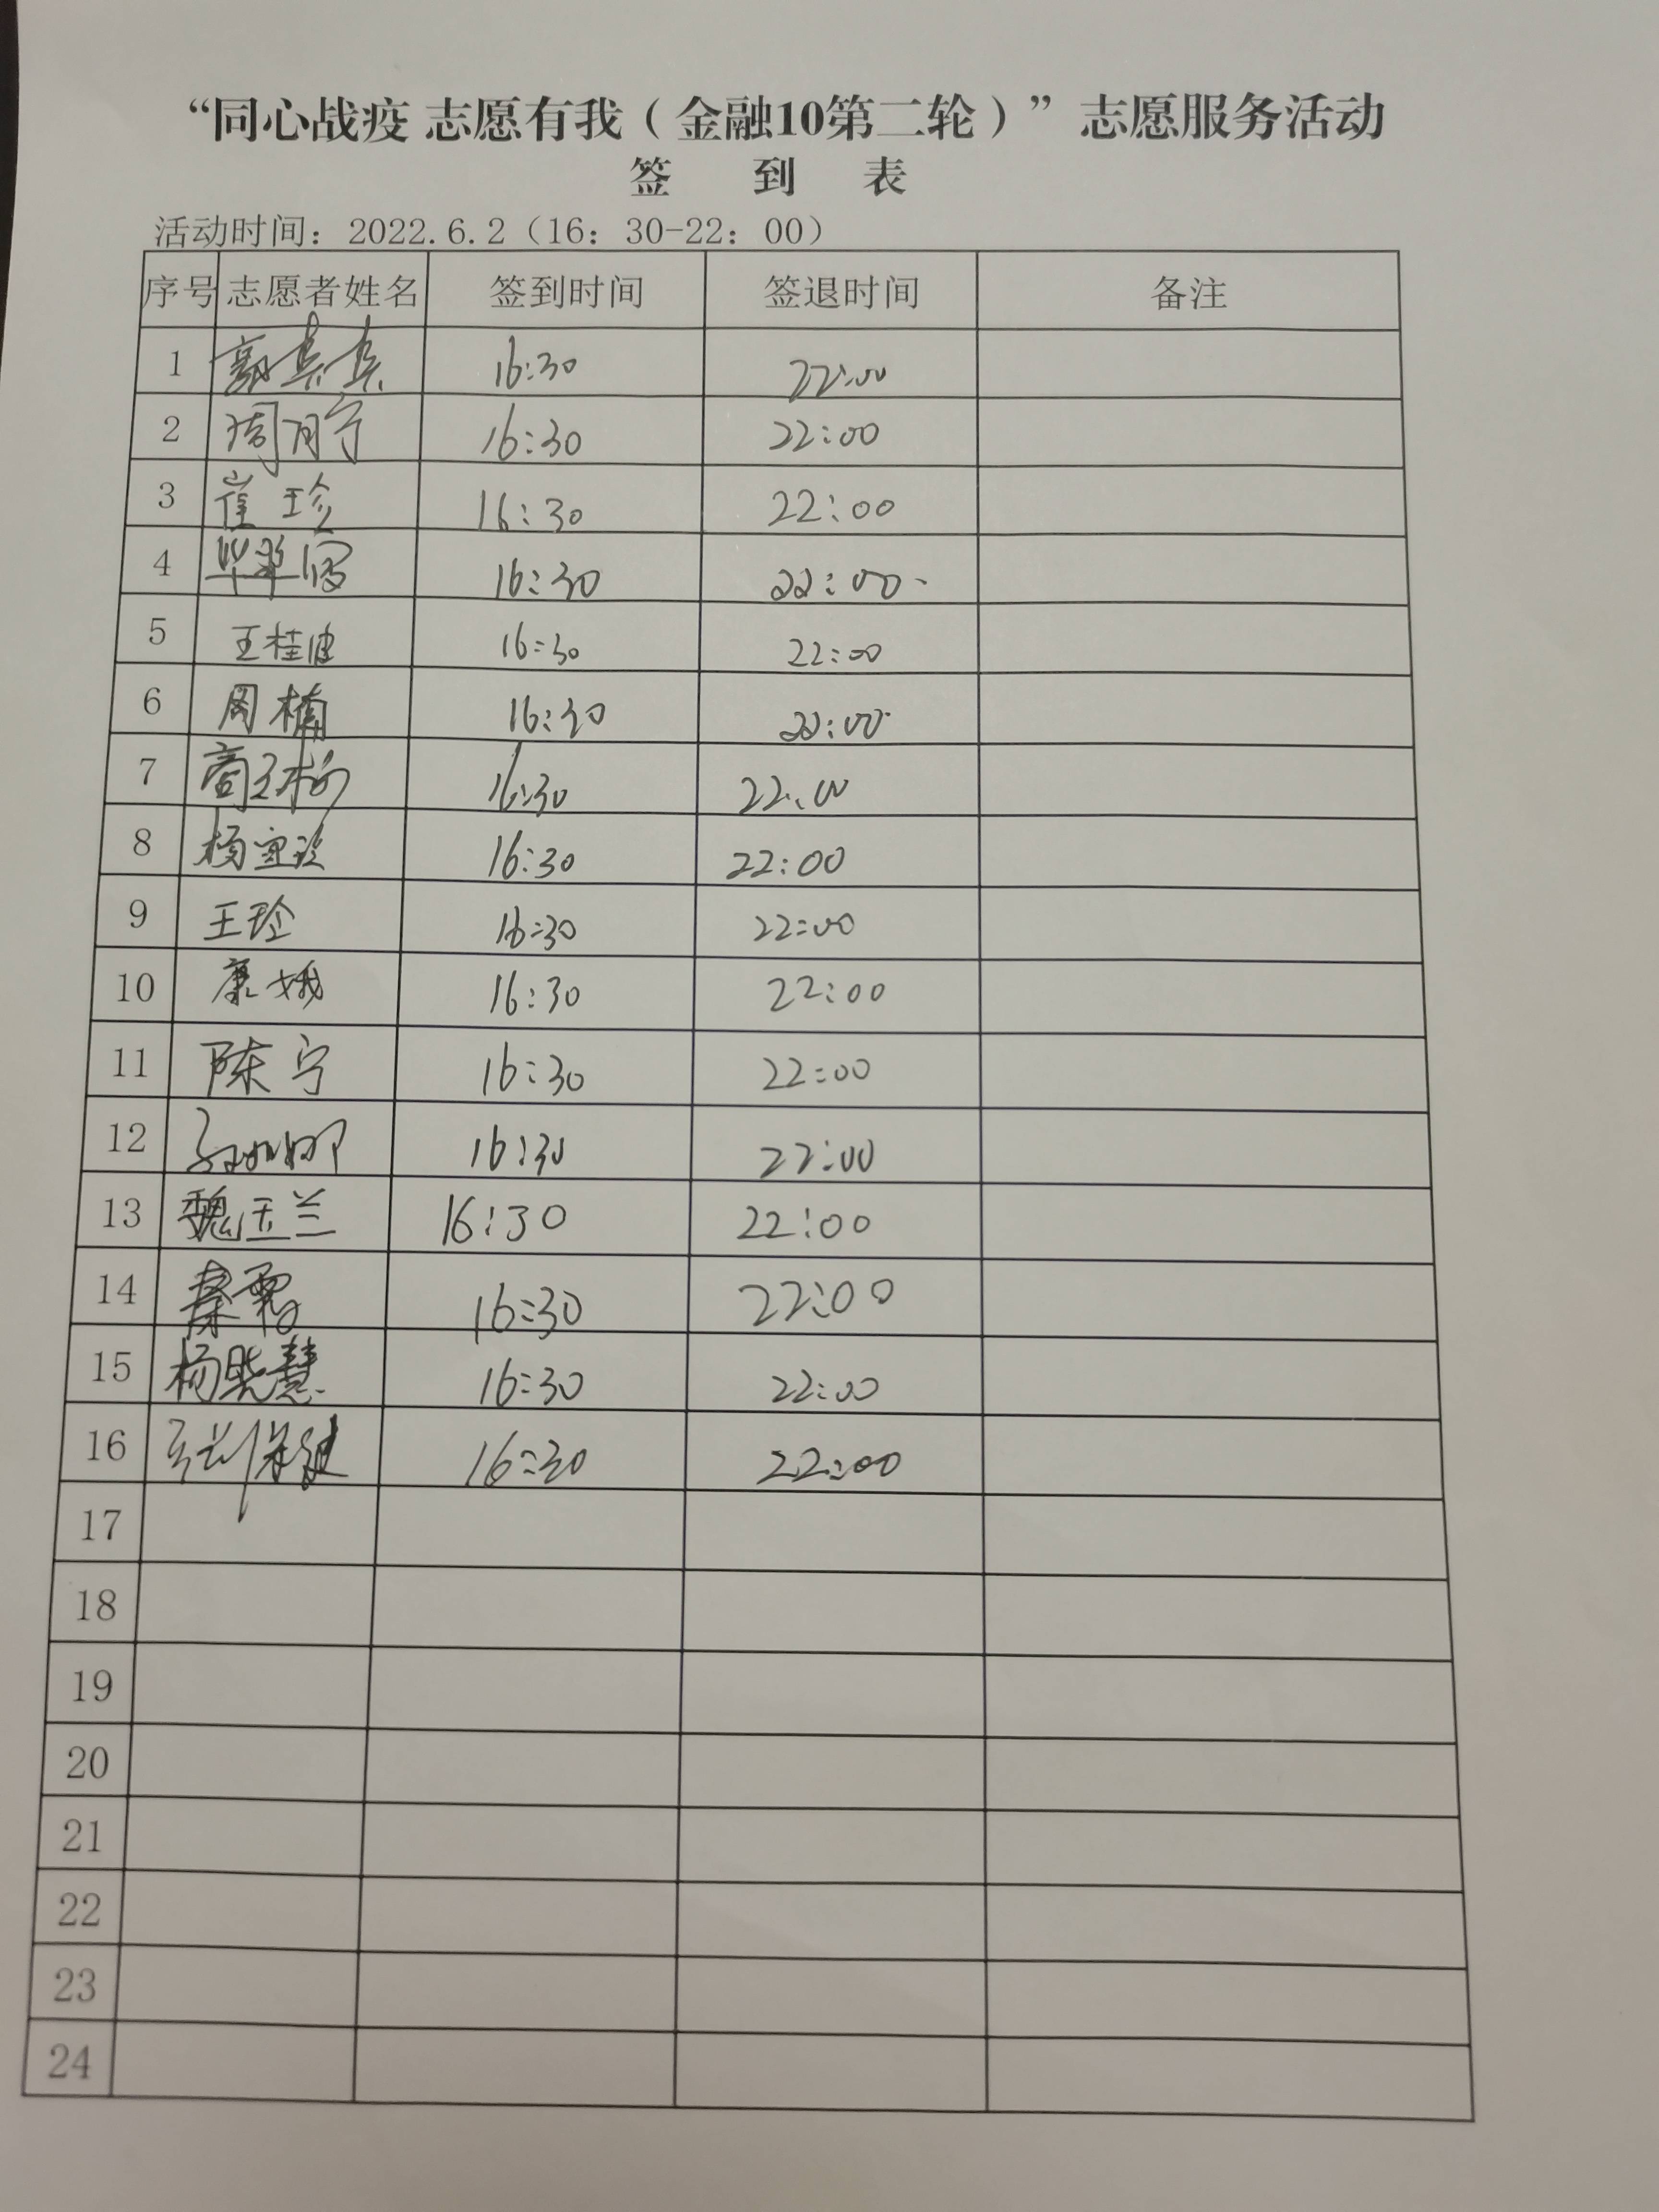 “同心战疫 志愿有我（金融10第二轮）”志愿服务活动
签 到 表
活动时间：2022.6.2（16：30-22：00）
序号 志愿者姓名 签到时间 签退时间 备注
1 16:30 22:00
2 周月宁 16:30 22:00
3 崔珍 16:30 22:00
4 16:30 22:00
5 王桂 16:30 22:00
6 周楠 16:30 22:00
7 16:30 22:00
8 杨 16:30 22:00
9 王玲 16:30 22:00
10 康娥 16:30 22:00
11 陈宁 16:30 22:00
12 16:30 22:00
13 魏玉兰 16:30 22:00
14 秦 16:30 22:00
15 杨晓慧 16:30 22:00
16 张保健 16:30 22:00
17
18
19
20
21
22
23
24